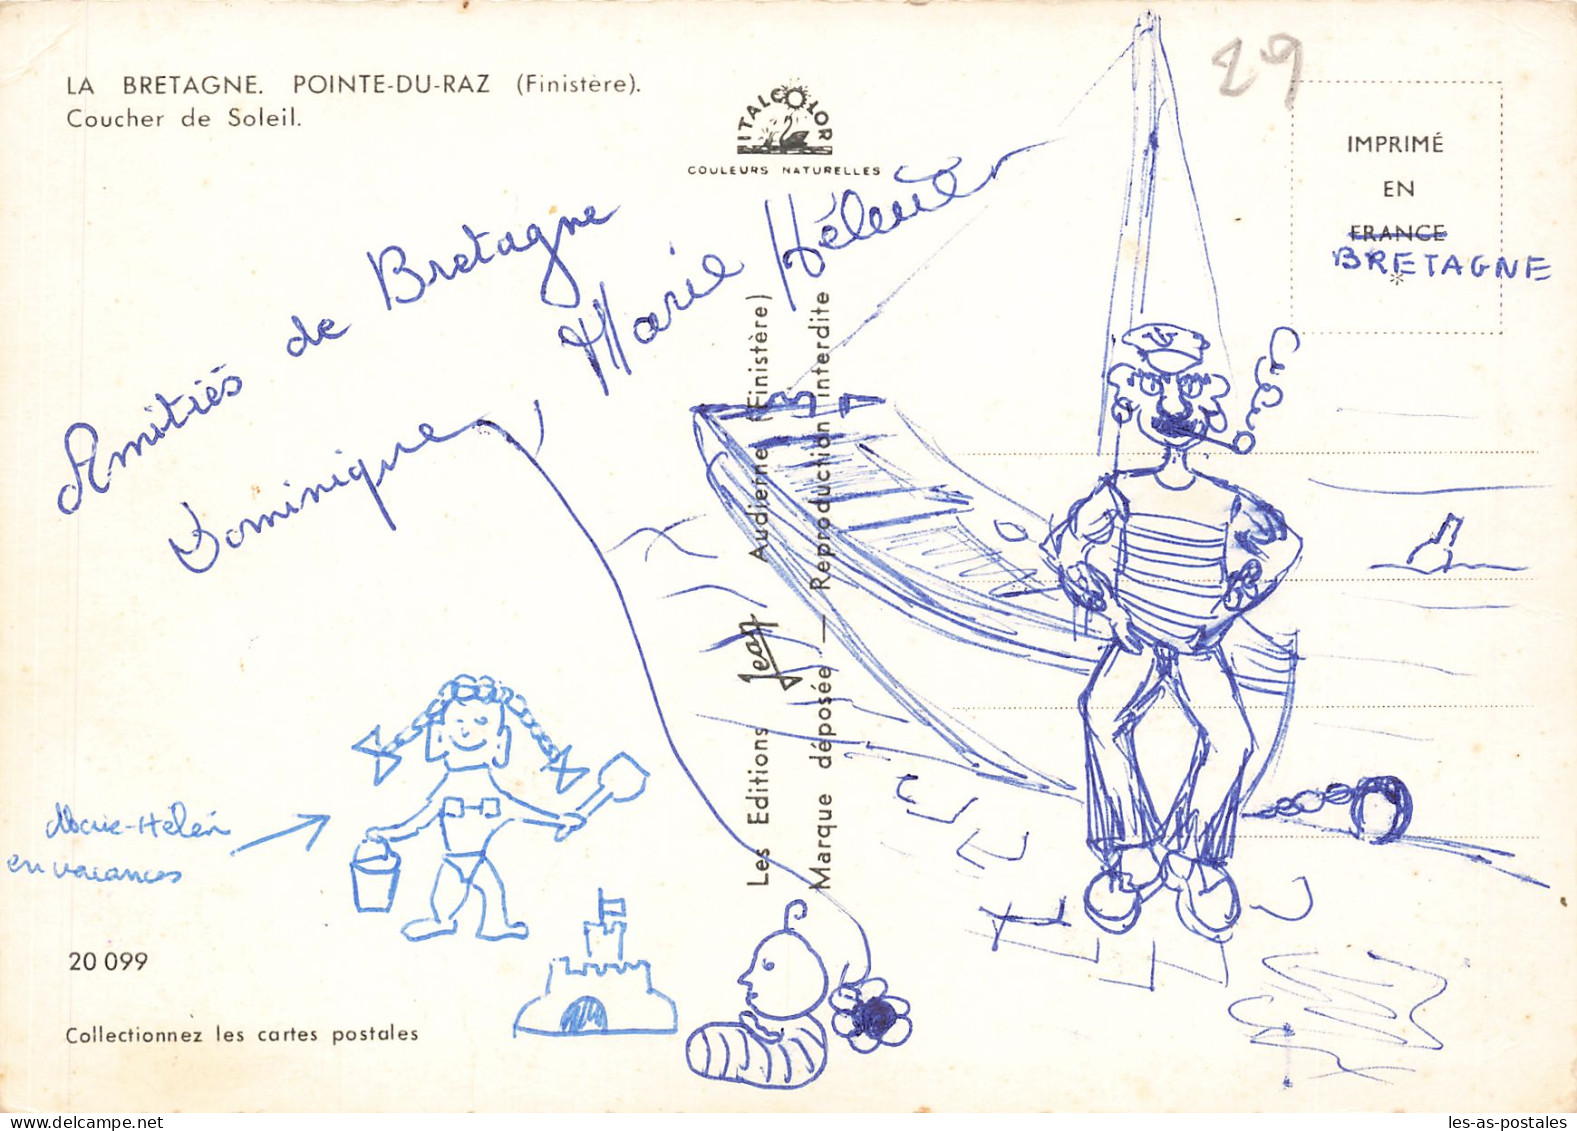 LA BRETAGNE. POINTE-DU-RAZ (Finistère).
Coucher de Soleil.
ITALCOLOR
COULEURS NATURELLES
29
IMPRIMÉ
EN
FRANCE
BRETAGNE
*
Amitiés de Bretagne
Dominique, Marie Hélène
Les Editions Jean Audierne (Finistère)
Marque déposée — Reproduction interdite
Marie-Hélèn
en vacances
20 099
Collectionnez les cartes postales
les-as-postales